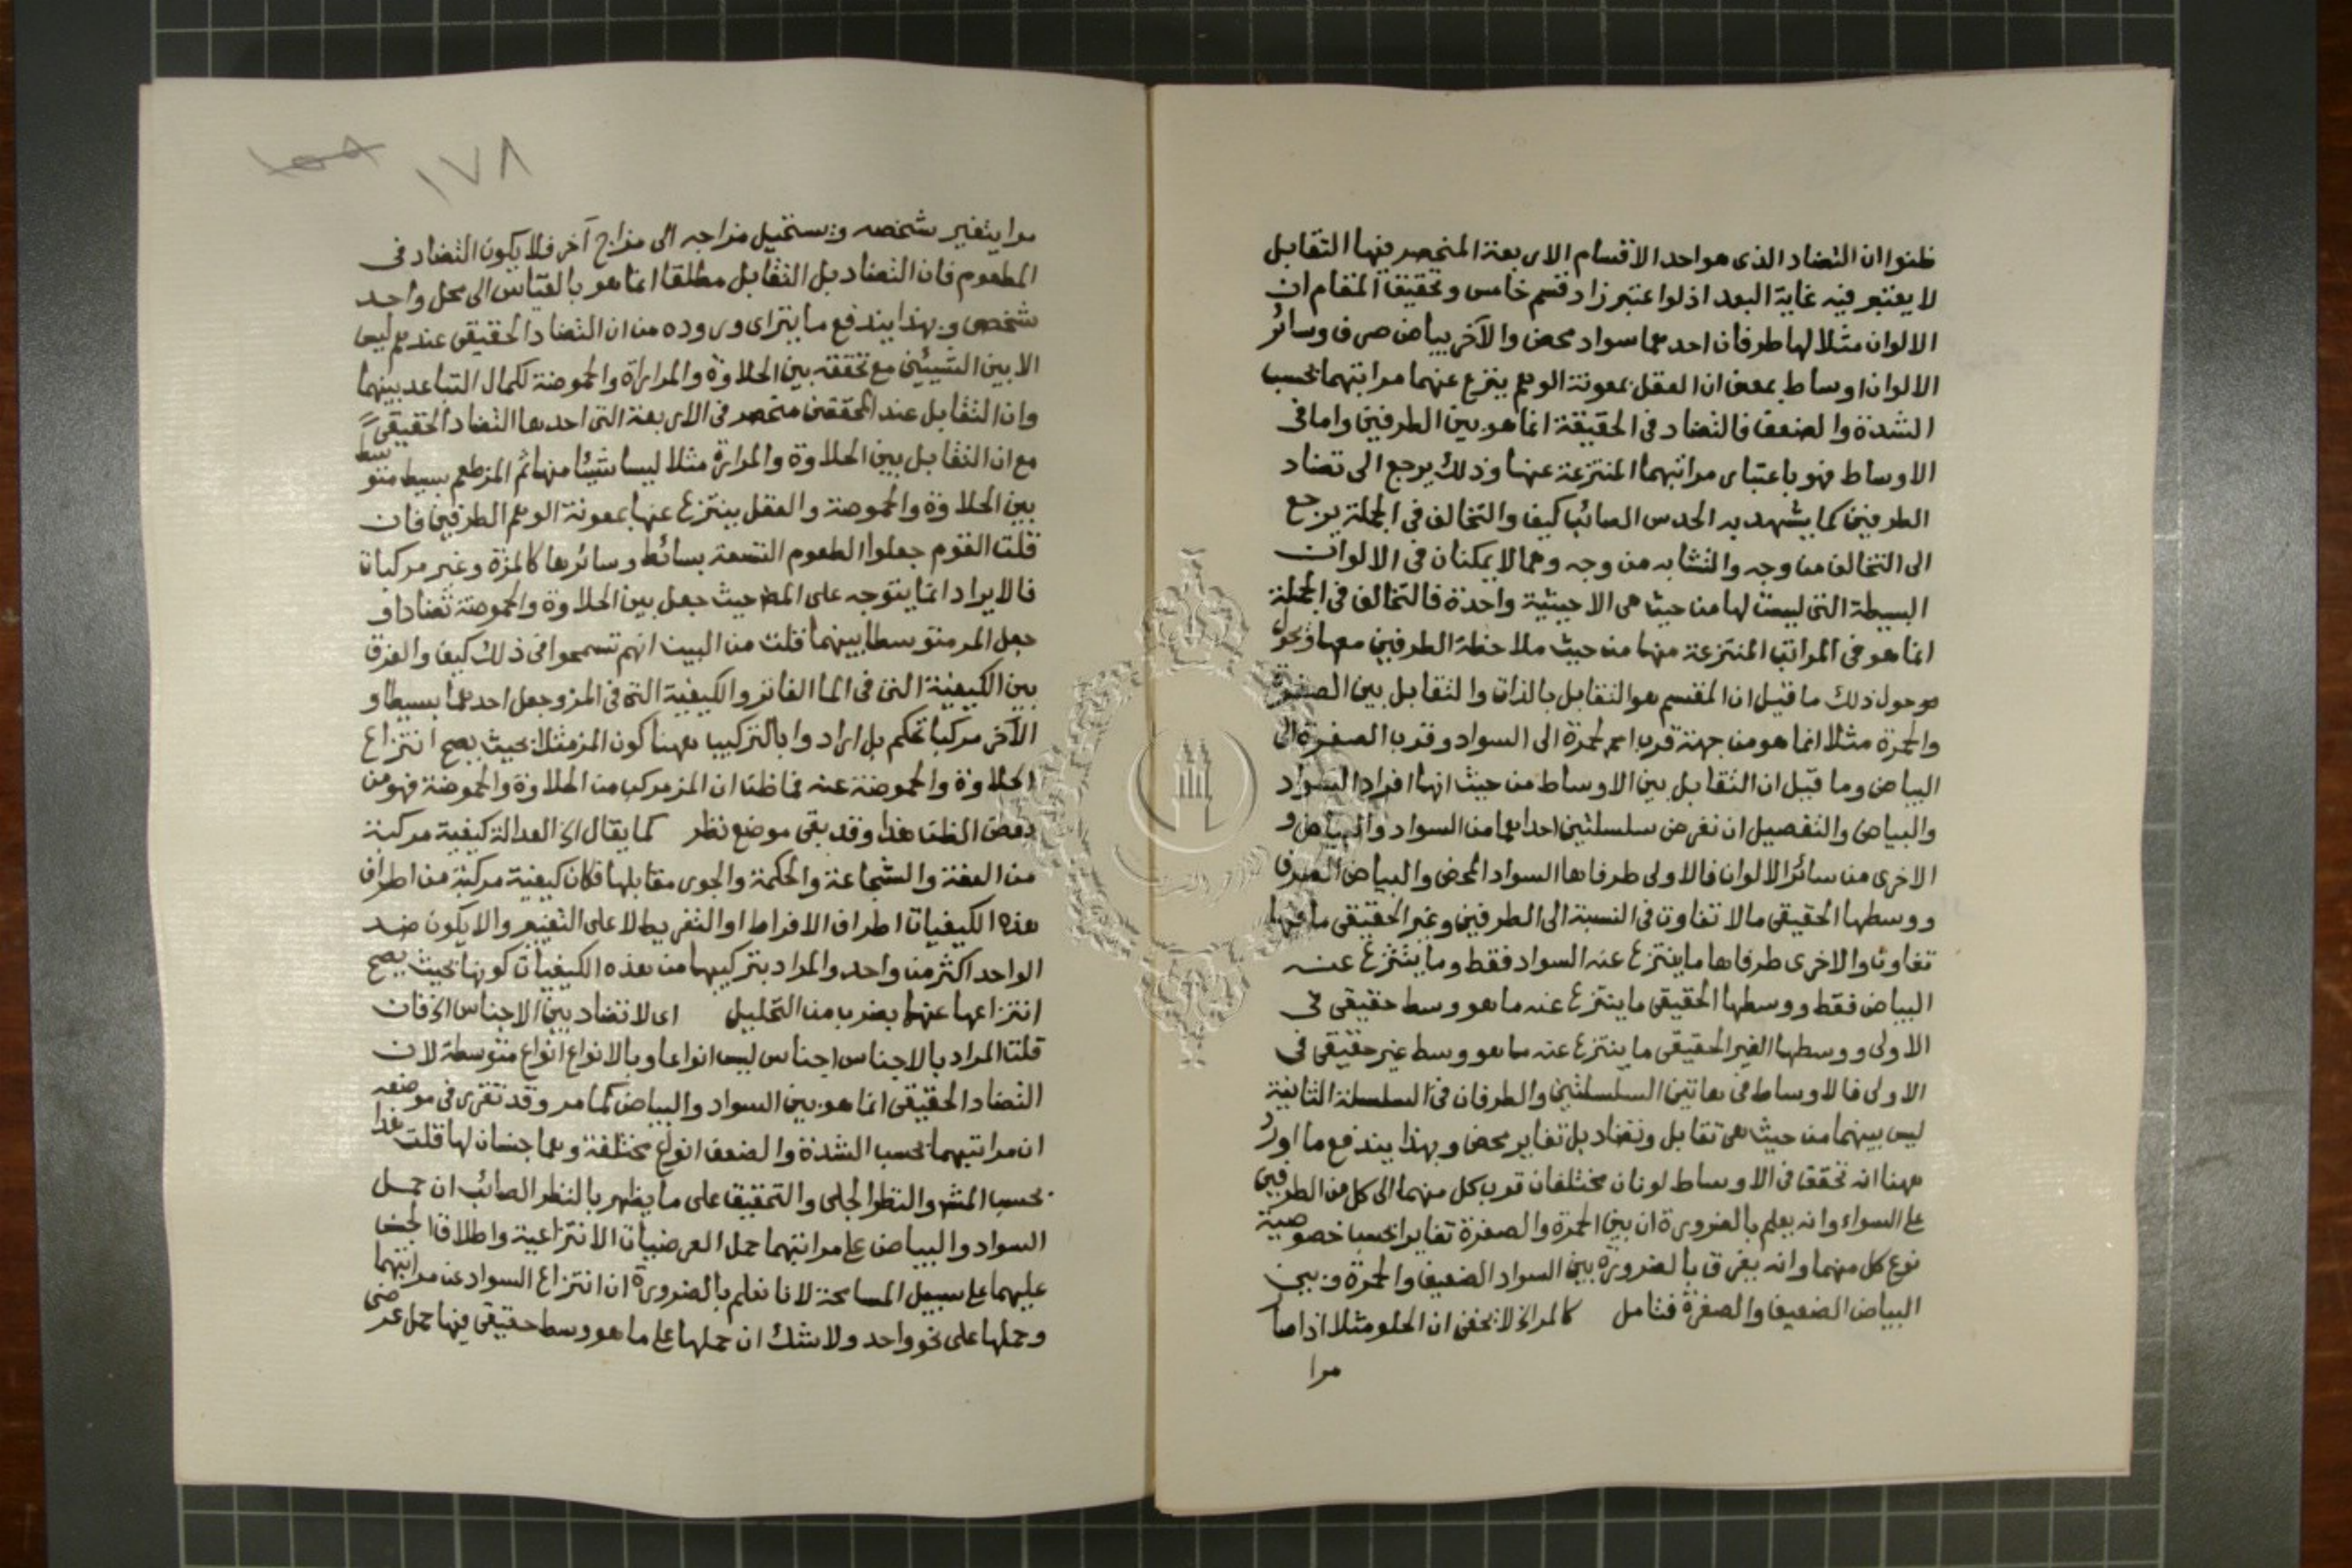 ظنوا ان التضاد الذى هو احد الاقسام الاربعة المنحصر فيها التقابل
لا يعتبر فيه غاية البعد اذ لو اعتبر زاد قسم خامس وتحقيق المقام ان
الالوان مثلا لها طرفان احدهما سواد محض والآخر بياض صرف وسائر
الالوان اوساط بمعنى ان العقل بمعونة الوهم ينزع عنهما مراتبهما بحسب
الشدة والضعف فالتضاد فى الحقيقة انما هو بين الطرفين واما فى
الاوساط فهو باعتبار مراتبهما المنتزعة عنها وذلك يرجع الى تضاد
الطرفين كما يشهد به الحدس الصائب كيف والتخالف فى الجملة يرجع
الى التخالف من وجه والتشابه من وجه وهما لا يمكنان فى الالوان
البسيطة التى ليست لها من حيث هى الا حيثية واحدة فالتخالف فى الجملة
انما هو فى المراتب المنتزعة منها من حيث ملاحظة الطرفين معها
حول ذلك ما قيل ان المقسم هو التقابل بالذات والتقابل بين الصفرة
والحمرة مثلا انما هو من جهة قرب الحمرة الى السواد وقرب الصفرة الى
البياض وما قيل ان التقابل بين الاوساط من حيث انها افراد السواد
والبياض والتفصيل ان نفرض سلسلتين احداهما من السواد والبياض و
الاخرى من سائر الالوان فالاولى طرفاها السواد المحض والبياض الصرف
ووسطها الحقيقى ما لا تفاوت فى النسبة الى الطرفين وغير الحقيقى ما فيها
تفاوت والاخرى طرفاها ما ينتزع عنه السواد فقط وما ينتزع عنه
البياض فقط ووسطها الحقيقى ما ينتزع عنه ما هو وسط حقيقى فى
الاولى ووسطها الغير الحقيقى ما ينتزع عنه ما هو وسط غير حقيقى فى
الاولى فالاوساط فى هاتين السلسلتين والطرفان فى السلسلة الثانية
ليس بينهما من حيث هى تقابل وتضاد بل تغاير محض وبهذا يندفع ما اورد
ههنا انه تحقق فى الاوساط لونان مختلفان قرب كل منهما الى كل من الطرفين
على السواء وانه يعلم بالضرورة ان بين الحمرة والصفرة تغايرا بحسب خصوصية
نوع كل منهما وانه يفرق بالضرورة بين السواد الضعيف والحمرة وبين
البياض الضعيف والصفرة فتأمل كالمر الخ لا يخفى ان الحلو مثلا اذا صار
مرا
١٧٨
مرا يتغير شخصه ويستحيل مزاجه الى مزاج آخر فلا يكون التضاد فى
المطعوم فان التضاد بل التقابل مطلقا انما هو بالقياس الى محل واحد
شخصى وبهذا يندفع ما يتراى وروده من ان التضاد الحقيقى عندهم ليس
الا بين الشيئين مع تحققه بين الحلاوة والمرارة والحموضة لكمال التباعد بينهما
وان التقابل عند المحققين منحصر فى الاربعة التى احدها التضاد الحقيقى
مع ان التقابل بين الحلاوة والمرارة مثلا ليس شيئا منها ثم المز طعم بسيط متوسط
بين الحلاوة والحموضة والعقل ينتزع عنها بمعونة الوهم الطرفين فان
قلت القوم جعلوا الطعوم التسعة بسائط وسائرها كالمزة وغير مركبات
فالايراد انما يتوجه على المص حيث جعل بين الحلاوة والحموضة تضادا و
جعل المر متوسطا بينهما قلت من البين انهم تسمحوا فى ذلك كيف والفرق
بين الكيفية التى فى الما الفاتر والكيفية التى فى المز وجعل احدهما بسيطا و
الآخر مركبا تحكم بل ارادوا بالتركيب ههنا كون المز مثلا بحيث يصح انتزاع
الحلاوة والحموضة عنه فما ظن ان المز مركب من الحلاوة والحموضة فهو من
بعض الظن هذا وقد بقى موضع نظر كما يقال الخ العدالة كيفية مركبة
من العفة والشجاعة والحكمة والجور مقابلها فكان كيفية مركبة من اطراف
هذه الكيفيات اطراف الافراط او التفريط لا على التعيين والا يكون ضد
الواحد اكثر من واحد والمراد بتركيبهما من هذه الكيفيات كونها بحيث يصح
انتزاعها عنهما بضرب من التحليل اى لا تضاد بين الاجناس الخ فان
قلت المراد بالاجناس اجناس ليس انواعا وبالانواع انواع متوسطة لان
التضاد الحقيقى انما هو بين السواد والبياض كما مر وقد تقرر فى موضعه
ان مراتبهما بحسب الشدة والضعف انواع مختلفة وهما جنسان لها قلت هذا
بحسب المشهر والنظر الجلى والتحقيق على ما يظهر بالنظر الصائب ان حمل
السواد والبياض على مراتبهما حمل العرضيات الانتزاعية واطلاق الجنس
عليهما على سبيل المسامحة لانا نعلم بالضرورة ان انتزاع السواد عن مراتبهما
وحملها على نحو واحد ولا شك ان حملها على ما هو وسط حقيقى فيها حمل عرضى